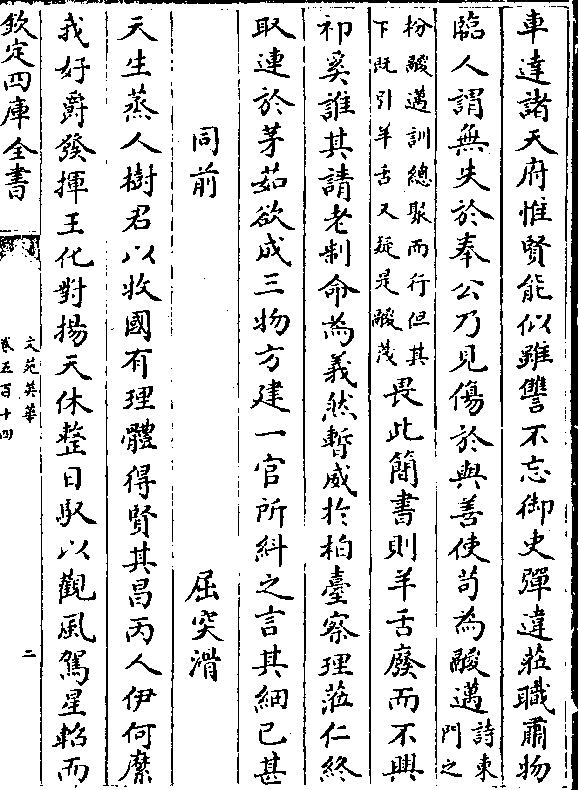 車達諸天府惟賢能似雖讐不忘御史彈違莅職肅物
臨人謂無失於奉公乃見傷於與善使苟為酸邁詩東門之
枌酸邁訓總聚而行但其下既引羊舌又疑是酸蔑畏此簡書則羊舌廢而不興
祁奚誰其請老制命為義然暫威於柏臺察理莅仁終
取連於茅茹欲成三物方建一官所糾之言其細已甚
同前 屈突滑
天生蒸人樹君以牧國有理體得賢其昌丙人伊何縻
我好爵發揮王化對揚天休整日馭以觀風駕星軺而
欽定四庫全書
文苑英華
卷五百十四
二